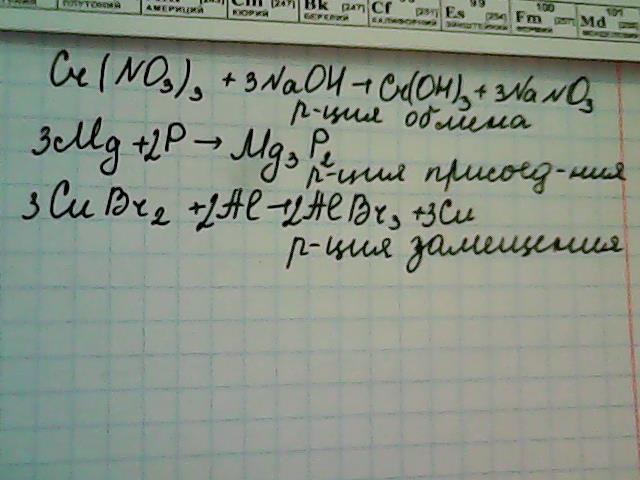 ПЛУТОНИЙ АМЕРИЦИЙ Cm [247] КЮРИЙ Bk [247] БЕРКЛИЙ Cf [251] КАЛИФОРНИЙ Es [254] ЭЙНШТЕЙНИЙ 100 Fm [257] ФЕРМИЙ 101 Md
Cr(NO₃)₃ + 3NaOH → Cr(OH)₃ + 3NaNO₃
р-ция обмена
3Mg + 2P → Mg₃P₂
р-ция присоед-ния
3CuBr₂ + 2Al → 2AlBr₃ + 3Cu
р-ция замещения